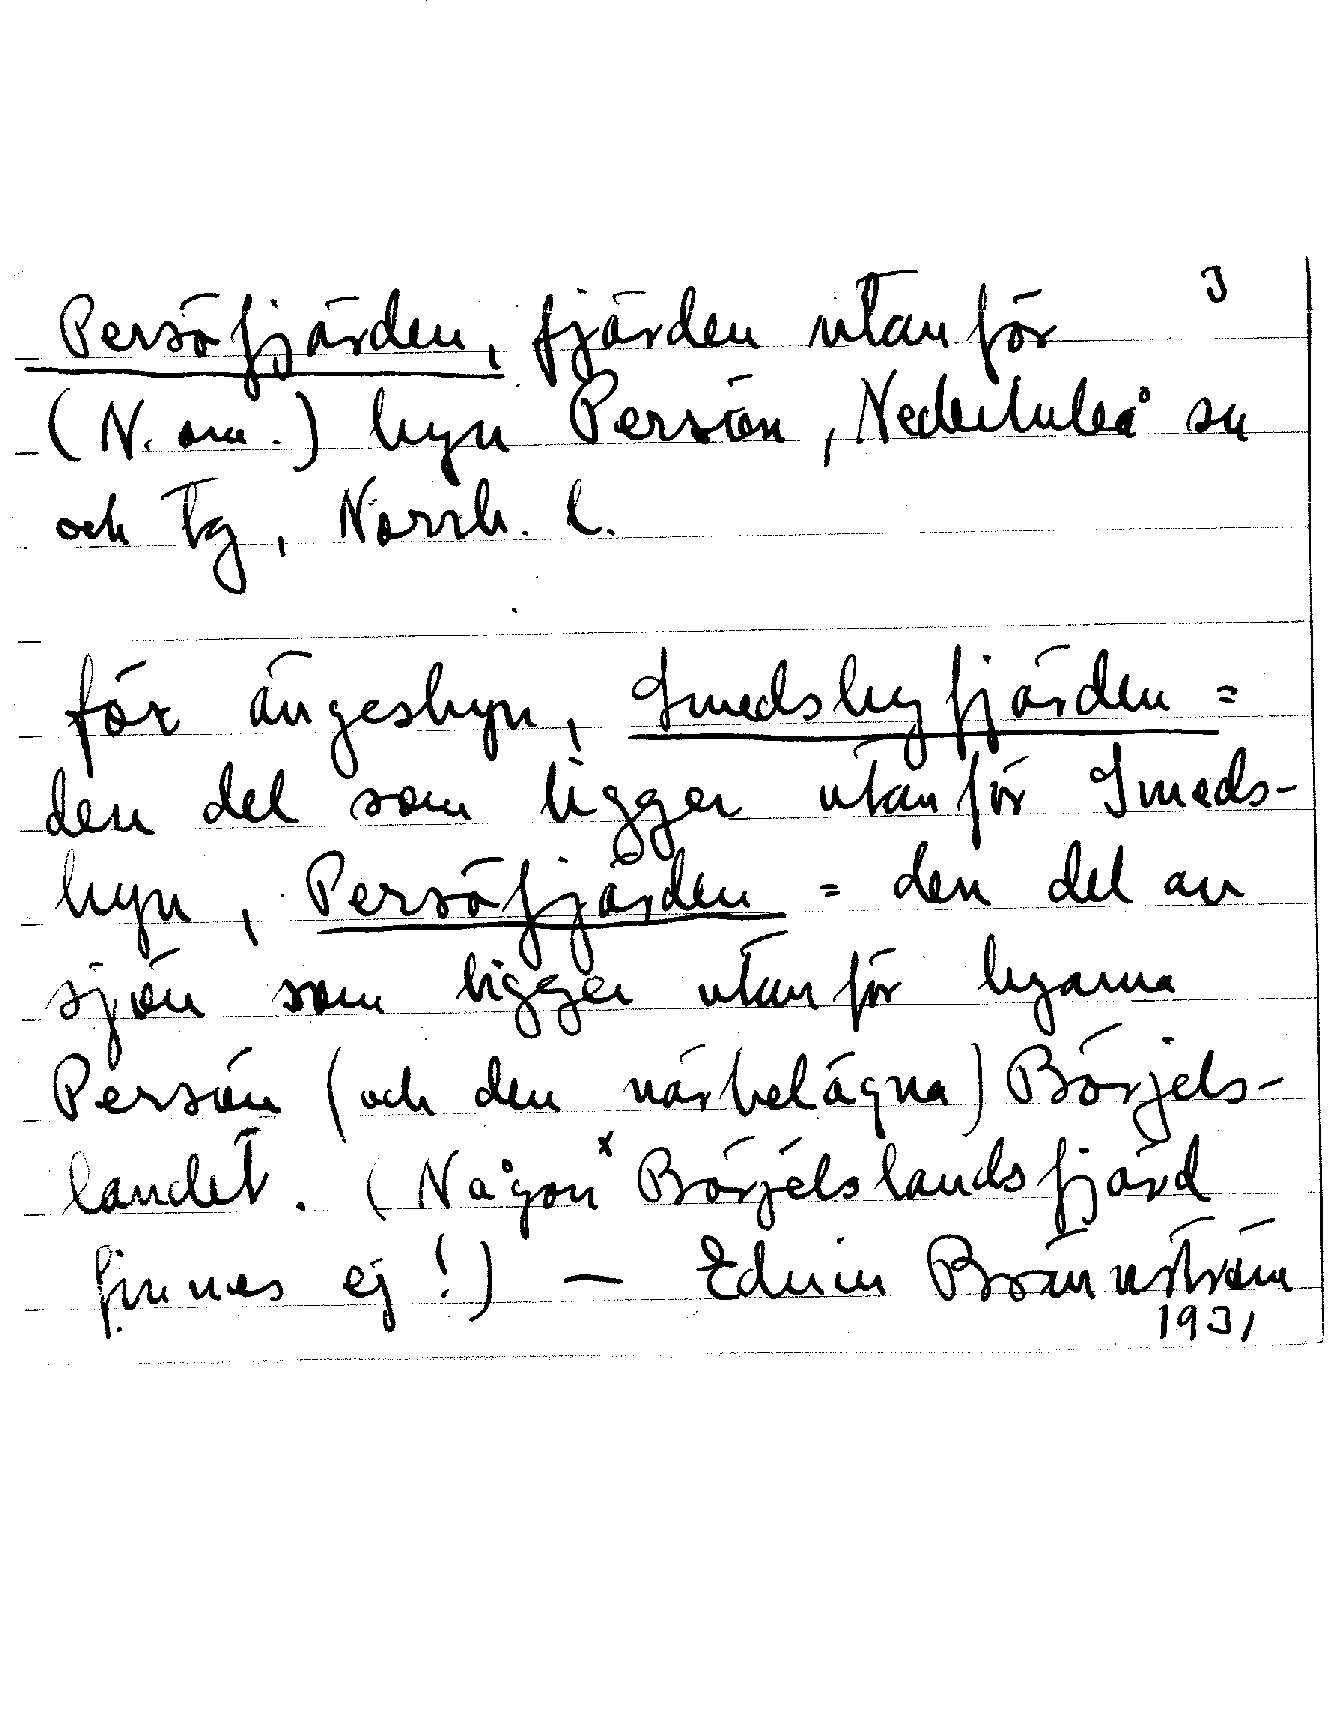 3
Persöfjärden, fjärden utanför
(N. om.) byn Persön, Nederluleå sn
och tg, Norrb. l.
för ängesbyn, Smedsbyfjärden =
den del som ligger utanför Smeds-
byn, Persöfjärden = den del av
sjön som ligger utanför byarna
Persön (och den närbelägna) Börjels-
landet. (Någon x Börjelslandsfjärd
finnes ej!) — Edvin Brännström
1931